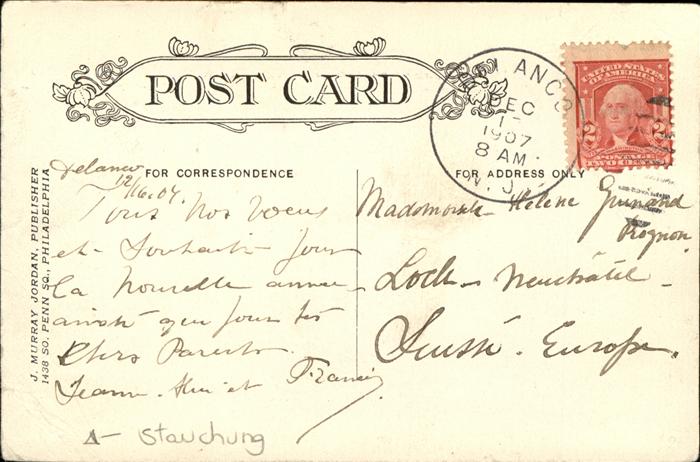 POST CARD
DELANCO
DEC
17
1907
8 AM
N.J.
UNITED STATES
OF AMERICA
2 2
POSTAGE
TWO CENTS
FOR CORRESPONDENCE
FOR ADDRESS ONLY
J. MURRAY JORDAN, PUBLISHER
1438 SO. PENN SQ., PHILADELPHIA
Delanco
12/16.07.
Tous nos voeux
et Souhaits pour
la nouvelle année
ainsi que pour tes
Chers Parents.
Jeanne et Francis
Mademoiselle Hélène
Locle Neuchâtel
Suisse. Europe.
A- Stauchung